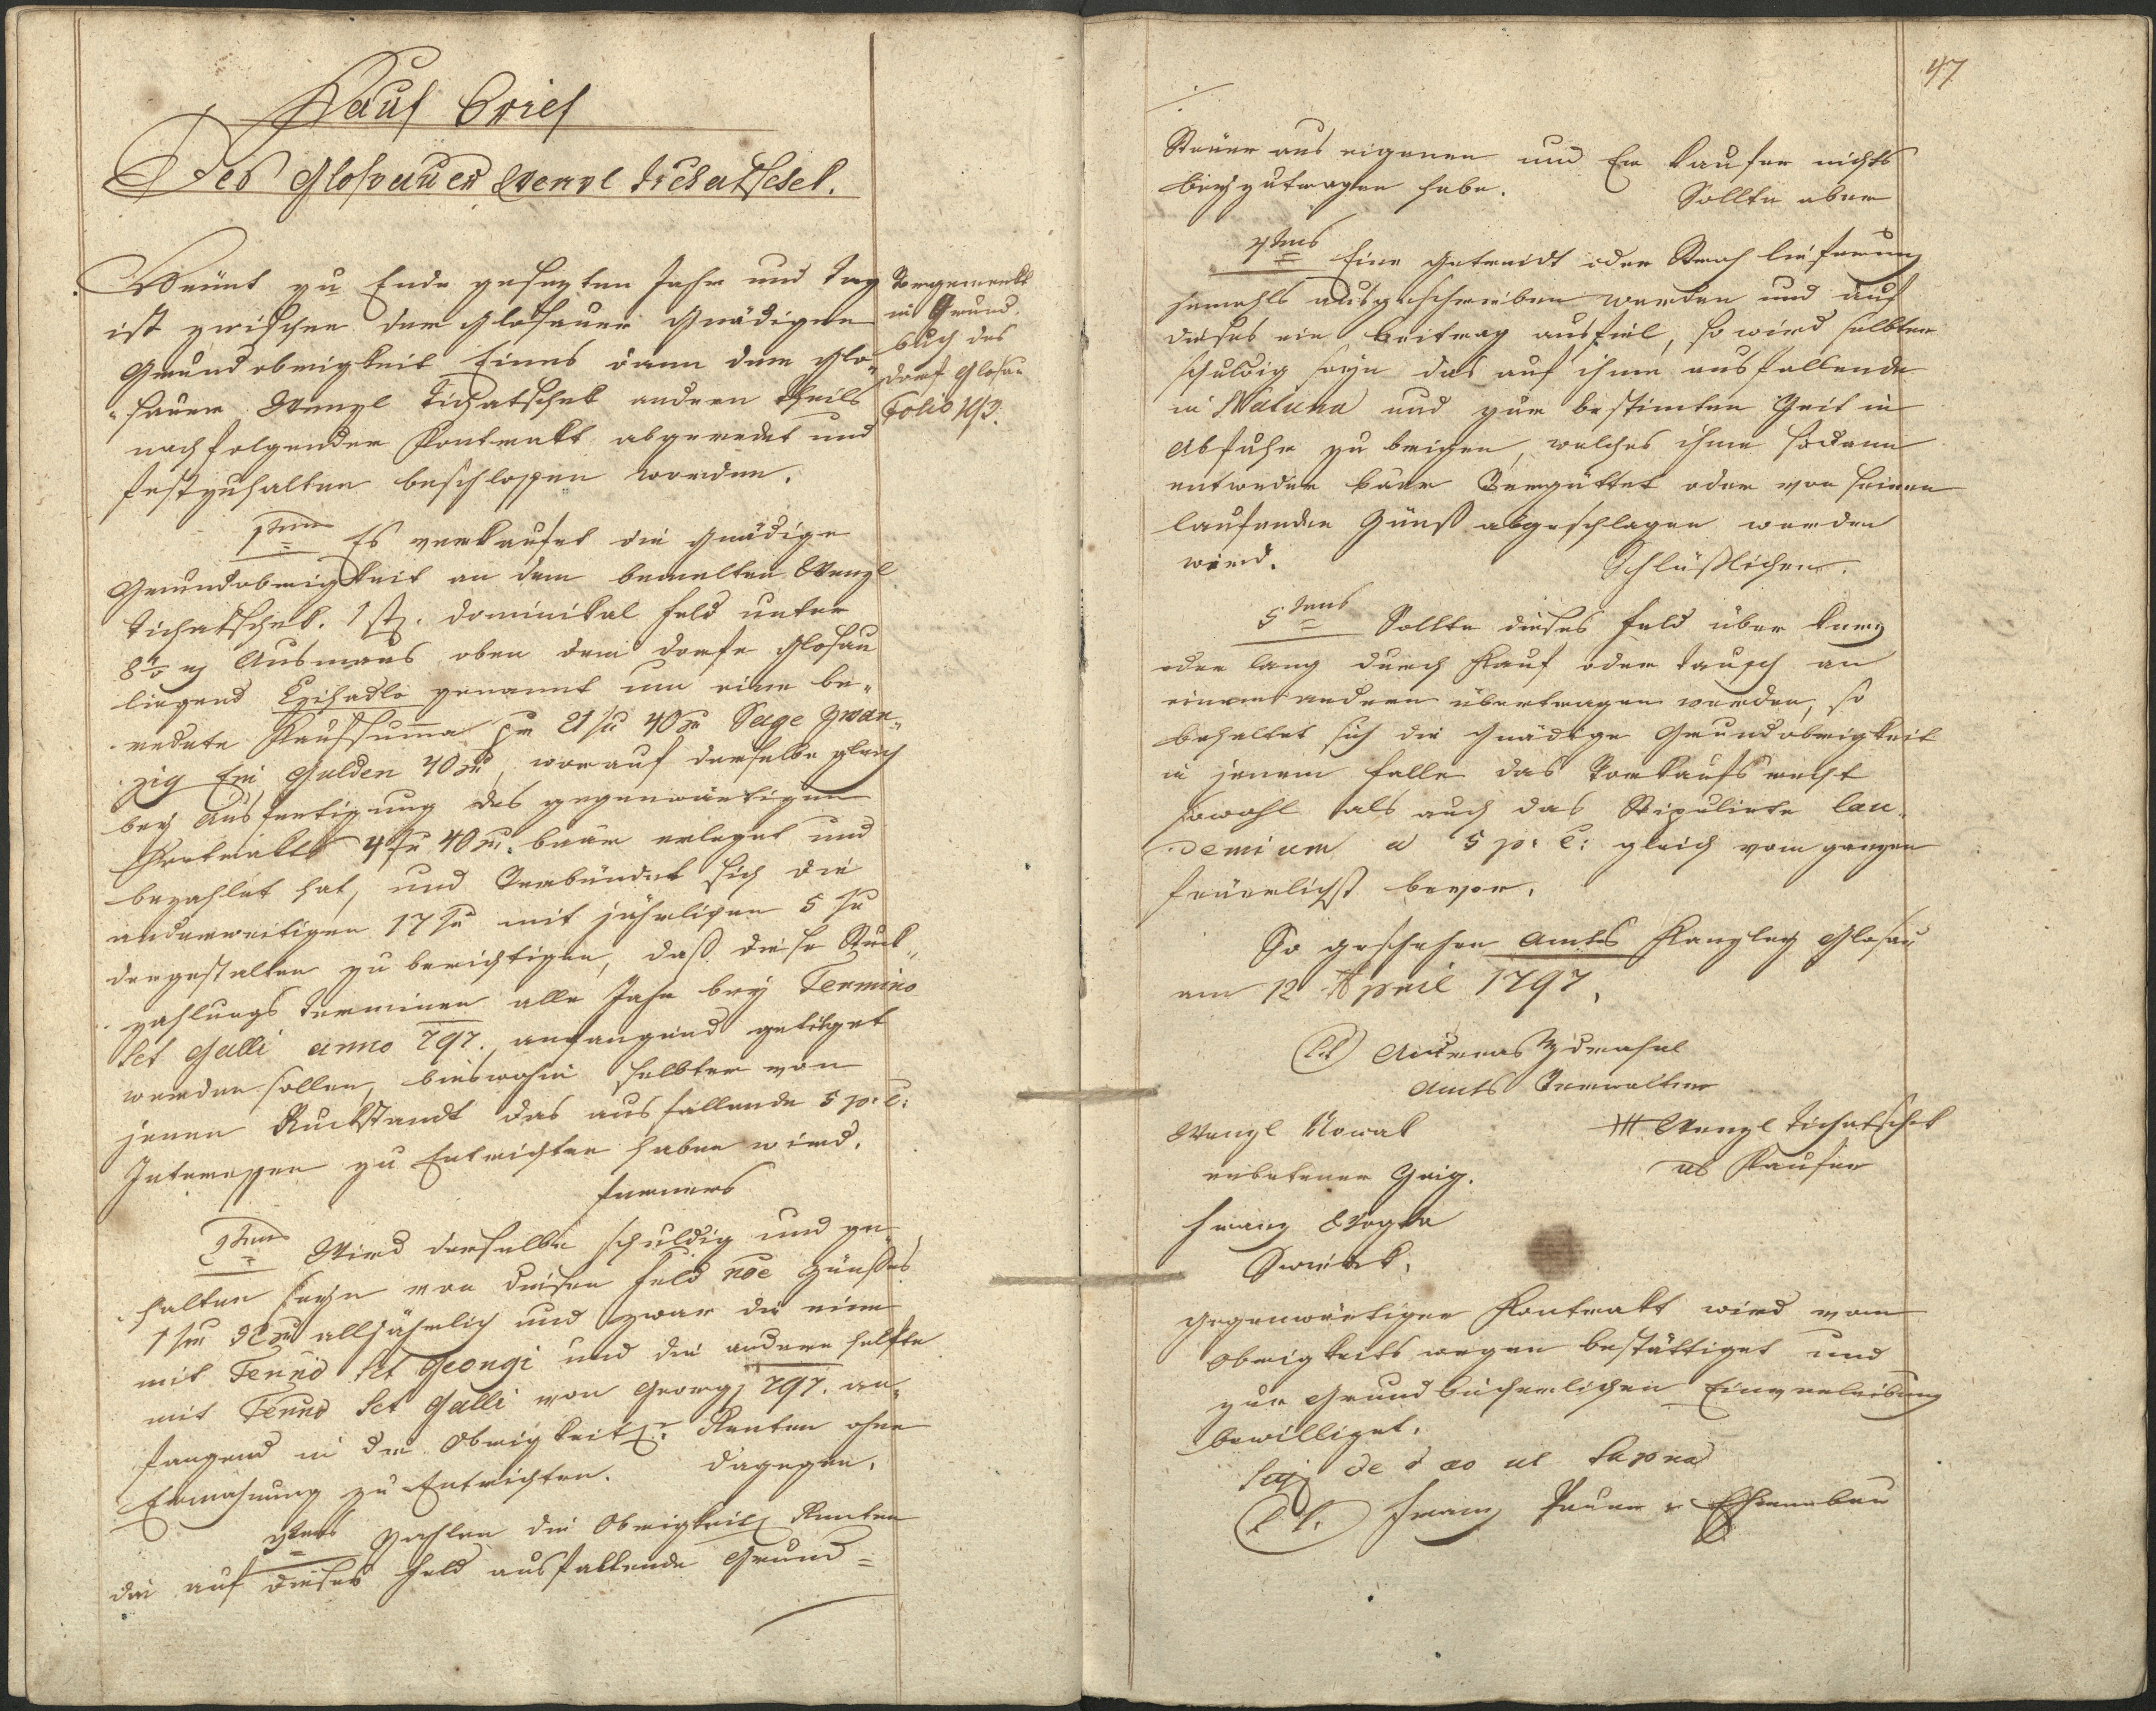 Kauf brief
Des Glosauer Wenzl Tichatschek.
Heünt zu Ende gesezten Jahr und Tag
ist zwischen der Glosauer Gnädigen
Grundobrigkeit Eines dann dem Glo„
„sauer Wenzl Tichatschek andern theils
nachfolgender Kontrakt abgeredet und
festzuhalten beschlossen worden.
1tens Es verkaufet die Gnädige
Grundobrigkeit an dem bemelten Wenzl
Tichatschek. 1 stk. Dominikal Feld unter
Ausmaas oben dem Dorfe Glosau
liegend genannt um eine be„
redete Kaufsumma pr 21 fl 40 xr Sage zwan„
zig Ein Gulden 40 xr, worauf derselbe gleich
bey Ausfertigung des gegenwärtigen
Kontrakts 4 fl 40 xr. baar erleget und
bezahlet hat, und Verbündet sich die
anderweitigen 17 fl mit jährlichen 5 fl
dergestalten zu berichtigen, daß diese Stuck„
zahlungs Terminen alle Jahr bey Termino
Sct Galli anno 797. anfangend getilget
werden sollen, bieswohin selbter von
jenen Ruckstandt das ausfallende 5 p: C:
Interessen zu Entrichten haben wird.
Ferners
2tens Wird derselbe schuldig und ge„
halten seyn von diesen Feld noe Zünßes
1 fl xr alljährlich und zwar die eine
mit Termo Sct Georgi und die andere helfte
mit Termo Sct Galli von Georgi 797. an„
fangend in die Obrigkeitl: Renten ohne
Ermahnung zu Entrichten. Dagegen.
3tens Zahlen die Obrigkeitl Renten
die auf dieses Feld ausfallende Grund=
Vorgemerkt
in Grund„
buch des
Dorf Glosau
Folio 193.
47
Steüer aus eigenen und Er Kaufer nichts
beyzutragen habe. Sollte aber
4tens Eine Getreidt oder Stroh lieferung
jemahls ausgeschrieben werden und auf
dieses ein beitrag ausfiel, so wird selbter
schuldig seyn das auf ihme ausfallende
in Natura und zur bestimten Zeit in
Abfuhr zu bringen, welches ihme sodann
entweder baar Vergüttet oder von seinen
laufenden Zünß abgeschlagen werden
wird. Schlüßlichen.
5tens Sollte dieses Feld über kurz
oder lang durch Kauf oder Tausch an
einem andern übertragen werden, so
behaltet sich die Gnädige Grundobrigkeit
in jenem falle das Vorkaufsrecht
sowohl als auch das Stipulirte lau„
demium a 5 p: C: gleich vom ganzen
feüerlichst bevor.
So geschehen Amts Kanzley Glosau
am 12 April 1797.
(LS) Andreas Zdrahal
Amts Verwalter
Wenzl Nowak
erbetener Zeig.
+++ Wenzl Tichatschek
als Kaufer
Franz
Gegenwärtiger Kontrakt wird vom
Obrigkeits wegen bestättiget und
zur Grundbücherlichen Einverleibung
bewilliget.
Sig de dao ut supra
(L S.) Franz